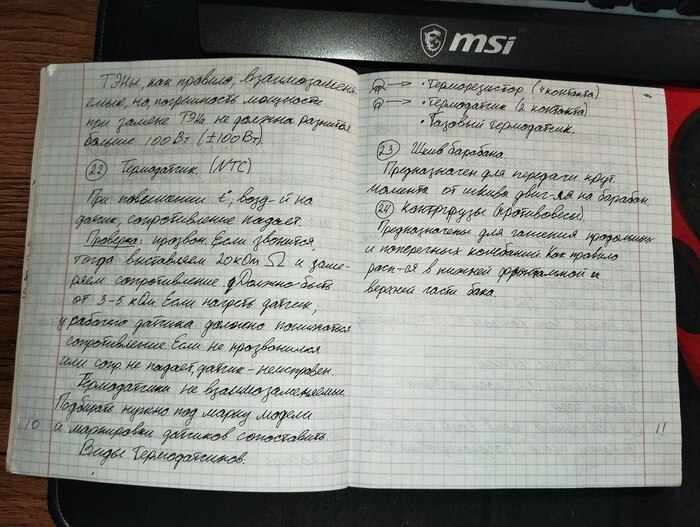 msi
ТЭНы, как правило, взаимозаменя-
емые, но, погрешность мощности
при замене ТЭНа не должна разнится
больше 100 Вт (±100Вт)
22 Термодатчик. (NTC)
При повышении t°, возд-й на
датчик, сопротивление падает.
Проверка: прозвон. Если звонится,
тогда выставляем 20кОм Ω и заме-
ряем сопротивление. Должно быть
от 3-5 кОм. Если нагреть датчик,
у рабочего датчика должно понижаться
сопротивление. Если не прозвонился
или сопр. не падает, датчик - неисправен.
Термодатчики не взаимозаменяемые.
Подбирать нужно под марку, модели
и маркировки датчиков сопоставить.
Виды Термодатчиков:
10
→ • Терморезистор (4 контакта)
→ • Термодатчик (2 контакта)
• Газовый термодатчик.
23 Шкив барабана
Предназначен для передачи крут.
момента от шкива двиг-ля на барабан.
24 Контргрузы (противовесы)
Предназначены для гашения продольных
и поперечных колебаний. Как правило
расп-ся в нижней фронтальной и
верхней части бака.
11